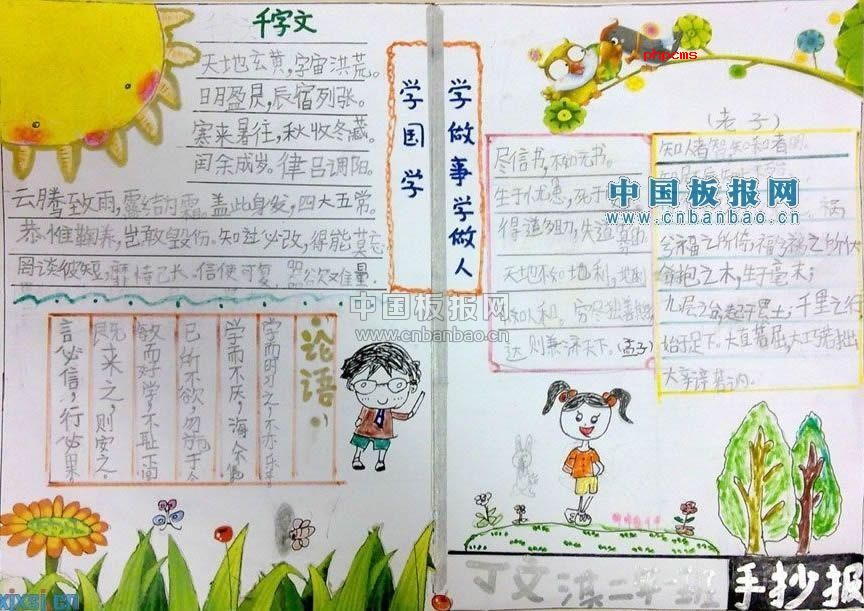 千字文
天地玄黄,宇宙洪荒。
日月盈昃,辰宿列张。
寒来暑往,秋收冬藏。
闰余成岁。律吕调阳。
云腾致雨,露结为霜。盖此身发,四大五常。
恭惟鞠养,岂敢毁伤。知过必改,得能莫忘
罔谈彼短,靡恃己长。信使可复,器欲难量
学国学
学做事学做人
论语
学而时习之,不亦乐
学而不厌,诲人不倦
己所不欲,勿施于人
敏而好学,不耻下问
既来之,则安之。
言必信,行必果
phpcms
尽信书,不如无书。
生于忧患,死于
得道多助,失道寡助
天地不如地利,地利
不如人和。穷则独善其身
达则兼济天下。(孟子)
(老子)
知人者智,知知者明。
祸
兮福之所倚,福兮祸之所伏
合抱之木,生于毫末;
九层之台,起于累土;千里之行
始于足下。大直若屈,大巧若拙
大辛济若讷。
中国板报网
www.cnbanbao.cn
中国板报网
www.cnbanbao.cn
丁文淇二年一班
手抄报
xixsi.cn